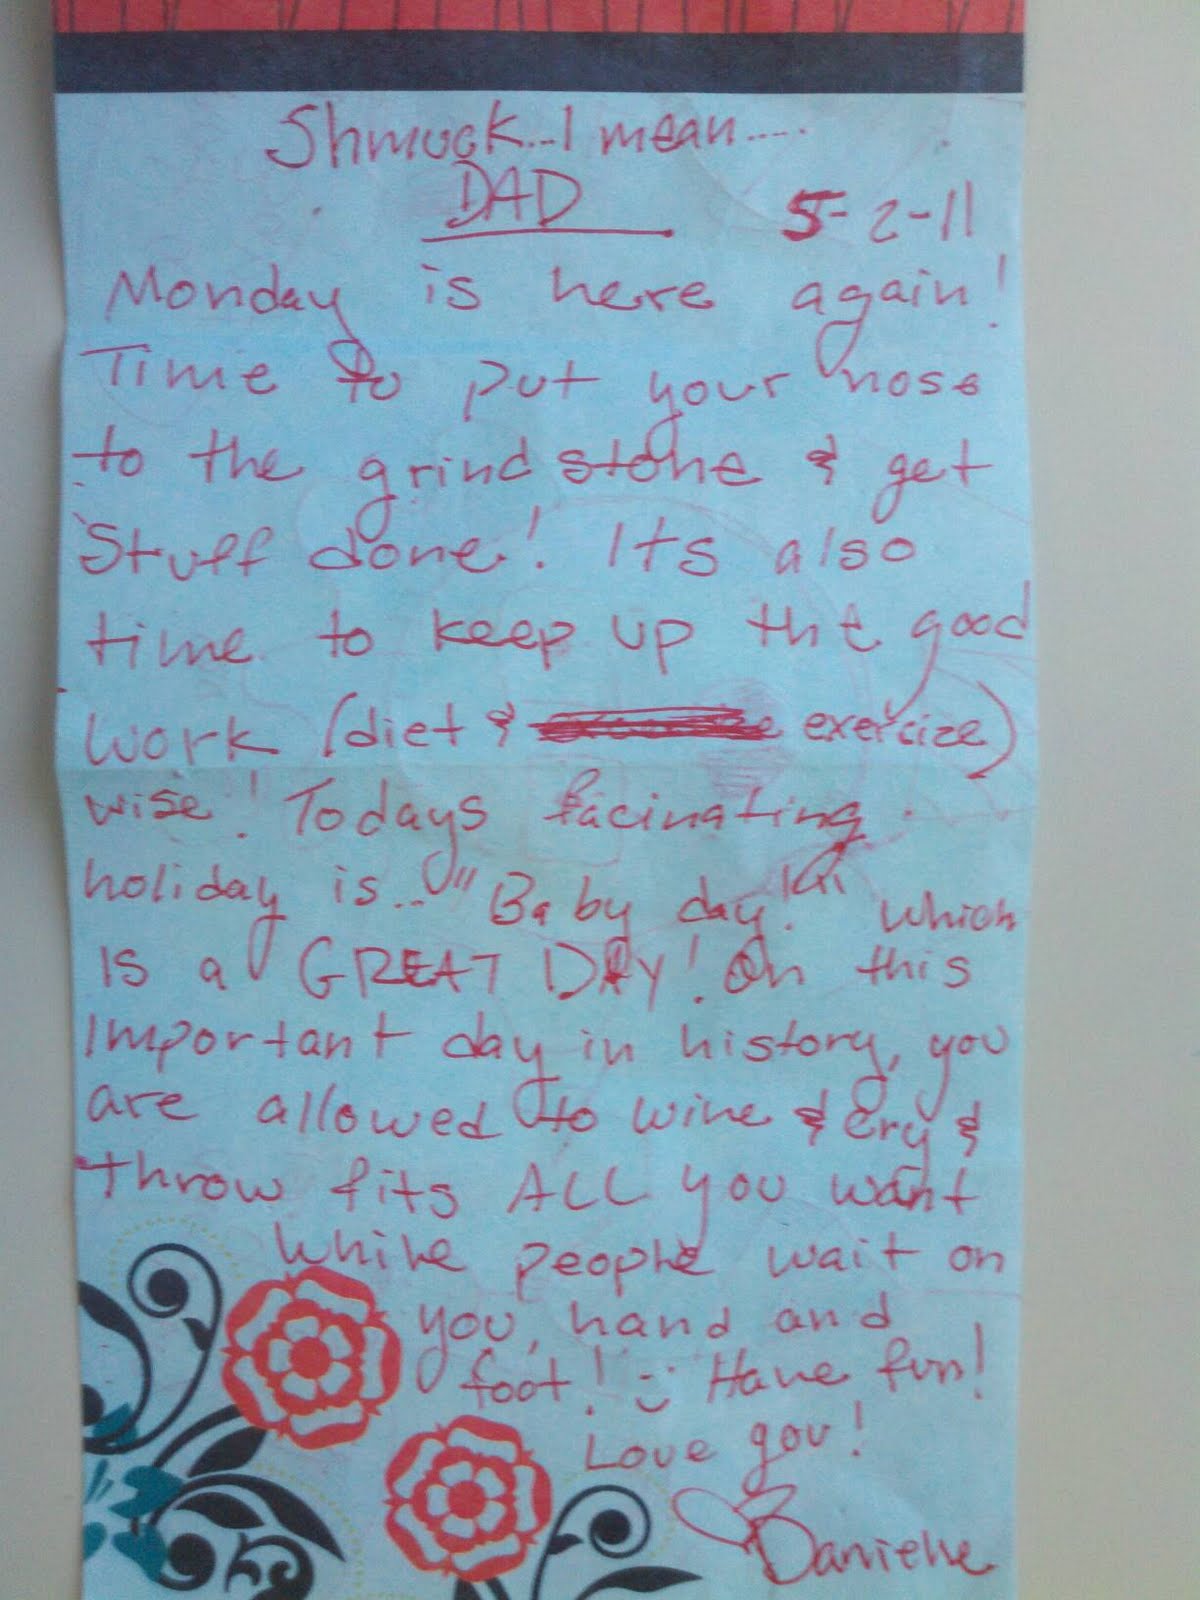 Shmuck...I mean.....
DAD 5-2-11
Monday is here again!
Time to put your nose
to the grindstone & get
Stuff done! Its also
time to keep up the good
work (diet & exercize)
wise! Todays facinating
holiday is.. "Baby day!" which
is a GREAT DAY! On this
important day in history, you
are allowed to wine & cry &
throw fits ALL you want
while people wait on
you, hand and
foot! :) Have fun!
Love you!
Danielle